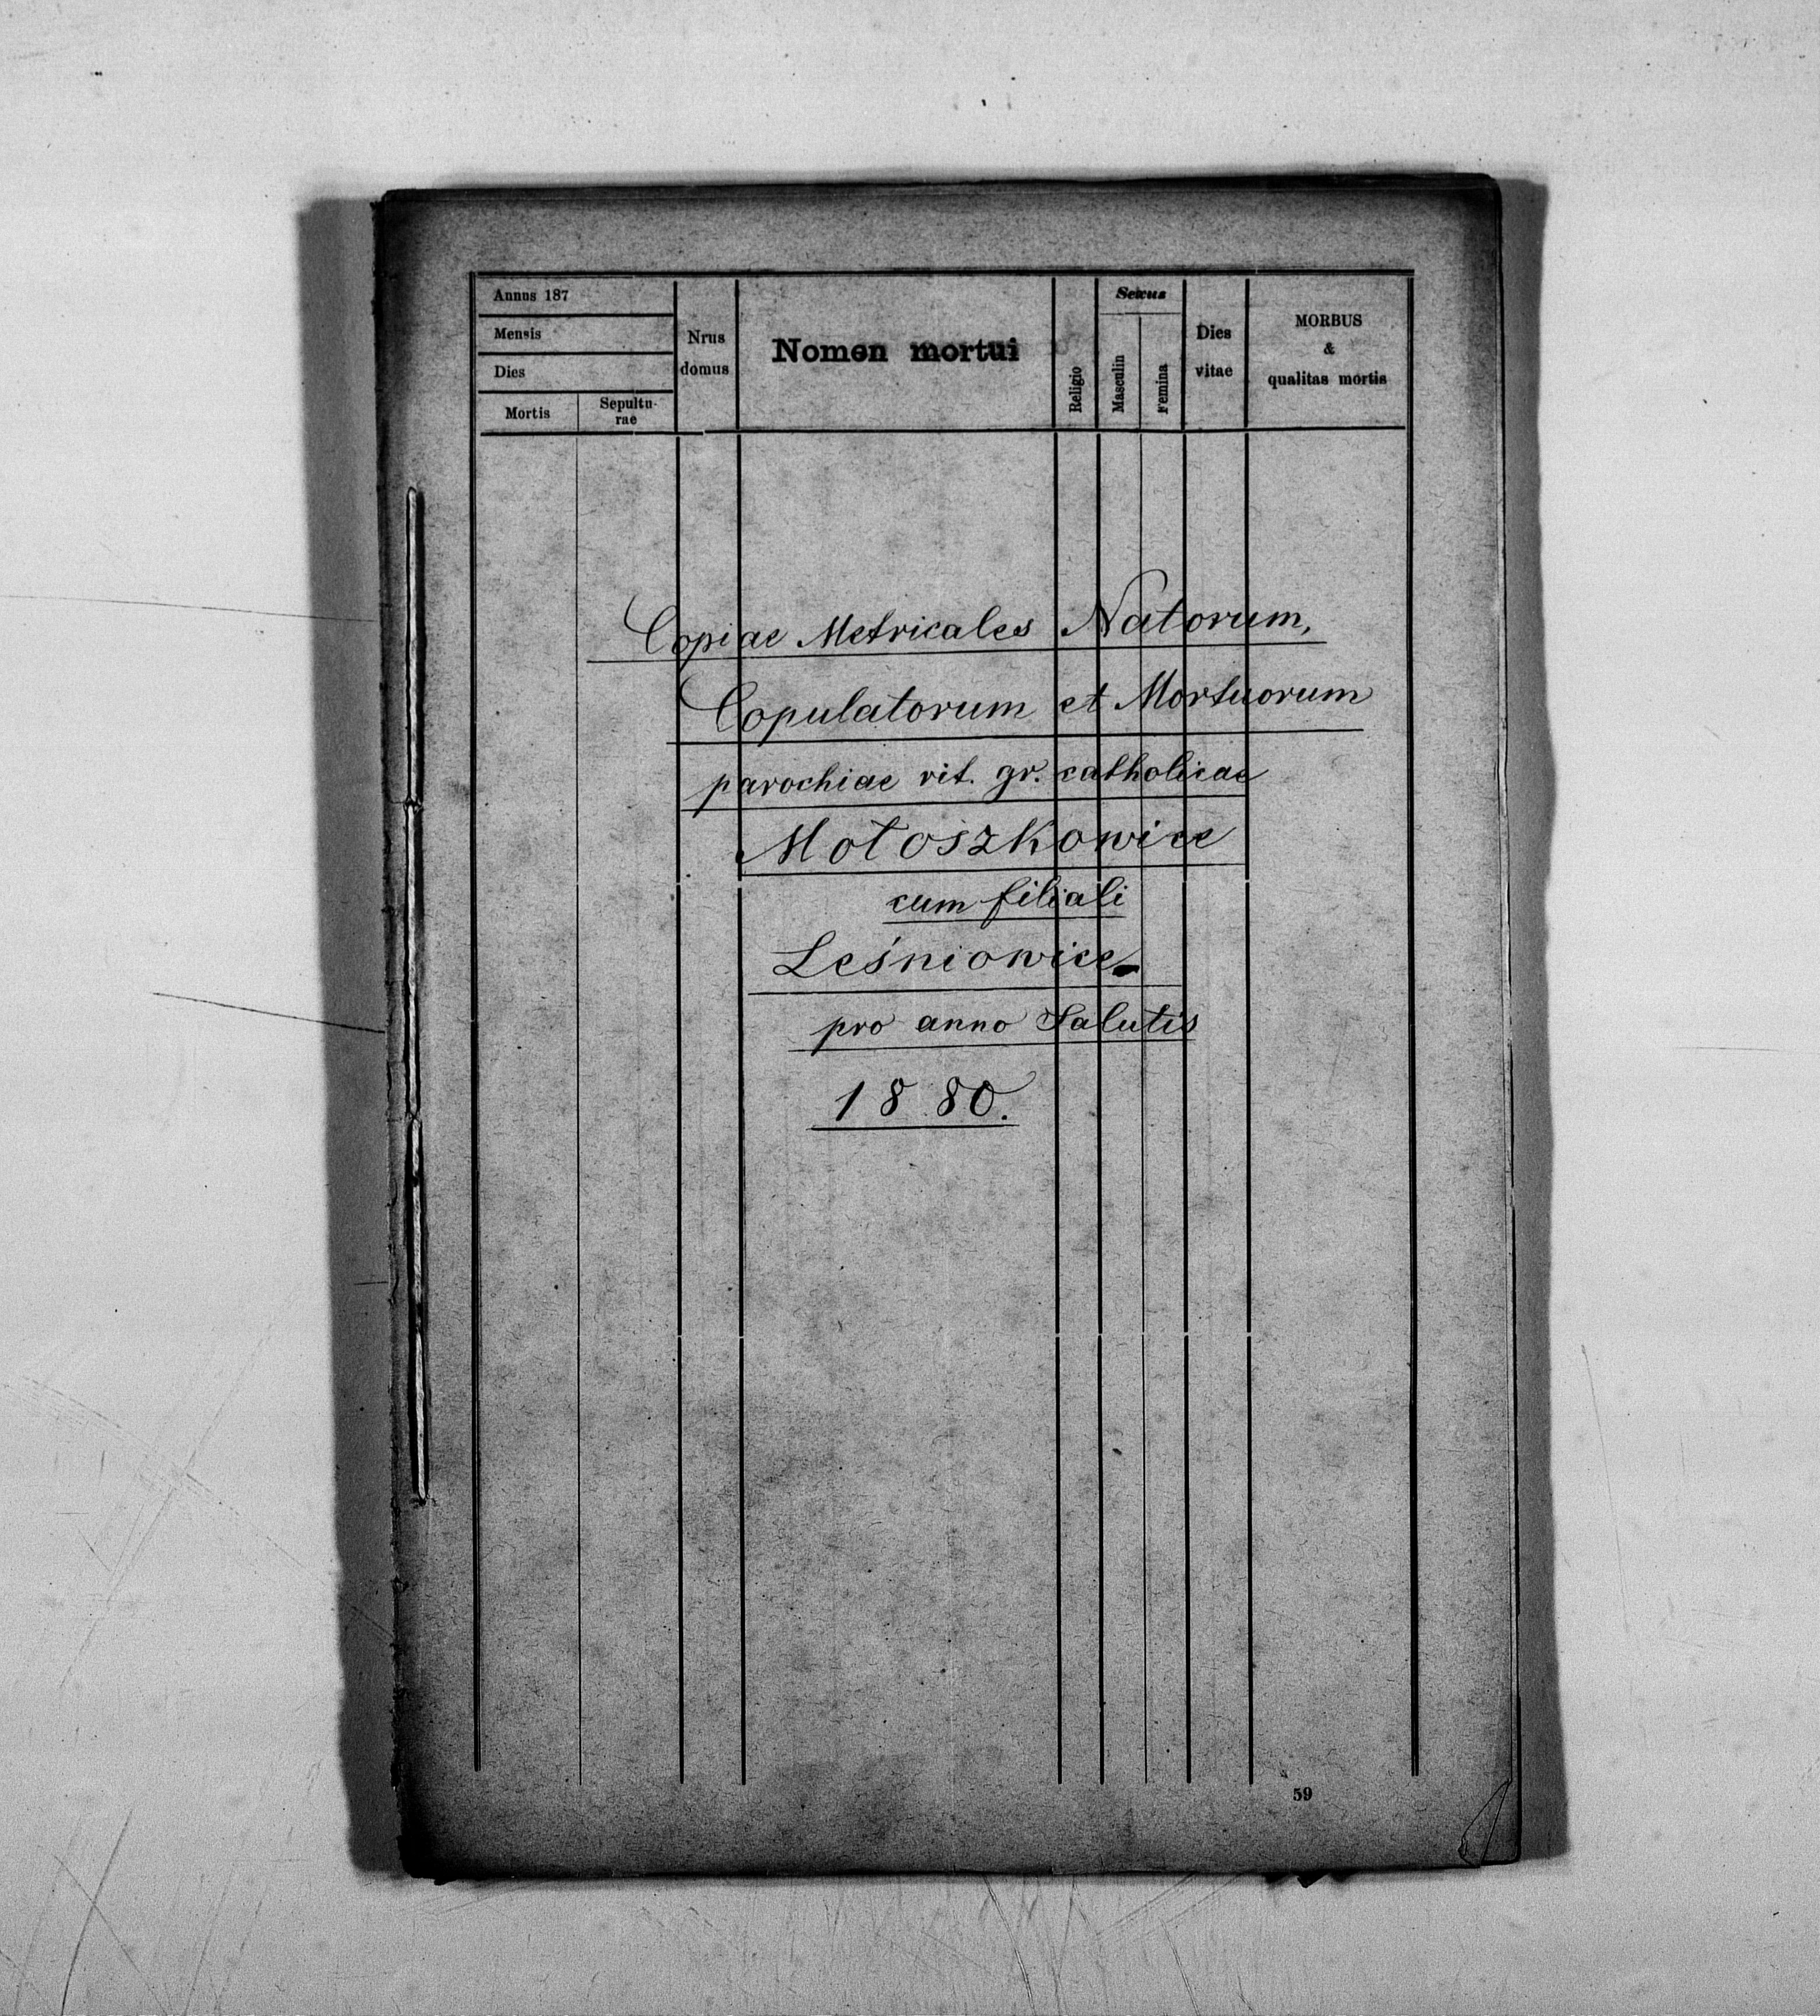 Annus 187
Mensis
Dies
Mortis
Sepultu-
rae
Nrus
domus
Nomen mortui
Religio
Sexus
Masculin
Femina
Dies
vitae
MORBUS
&
qualitas mortis
Copiae Metricales Natorum,
Copulatorum et Mortuorum
parochiae rit. gr. catholicae
Mołoszkowice
cum filiali
Leśniowice
pro anno Salutis
1880.
59